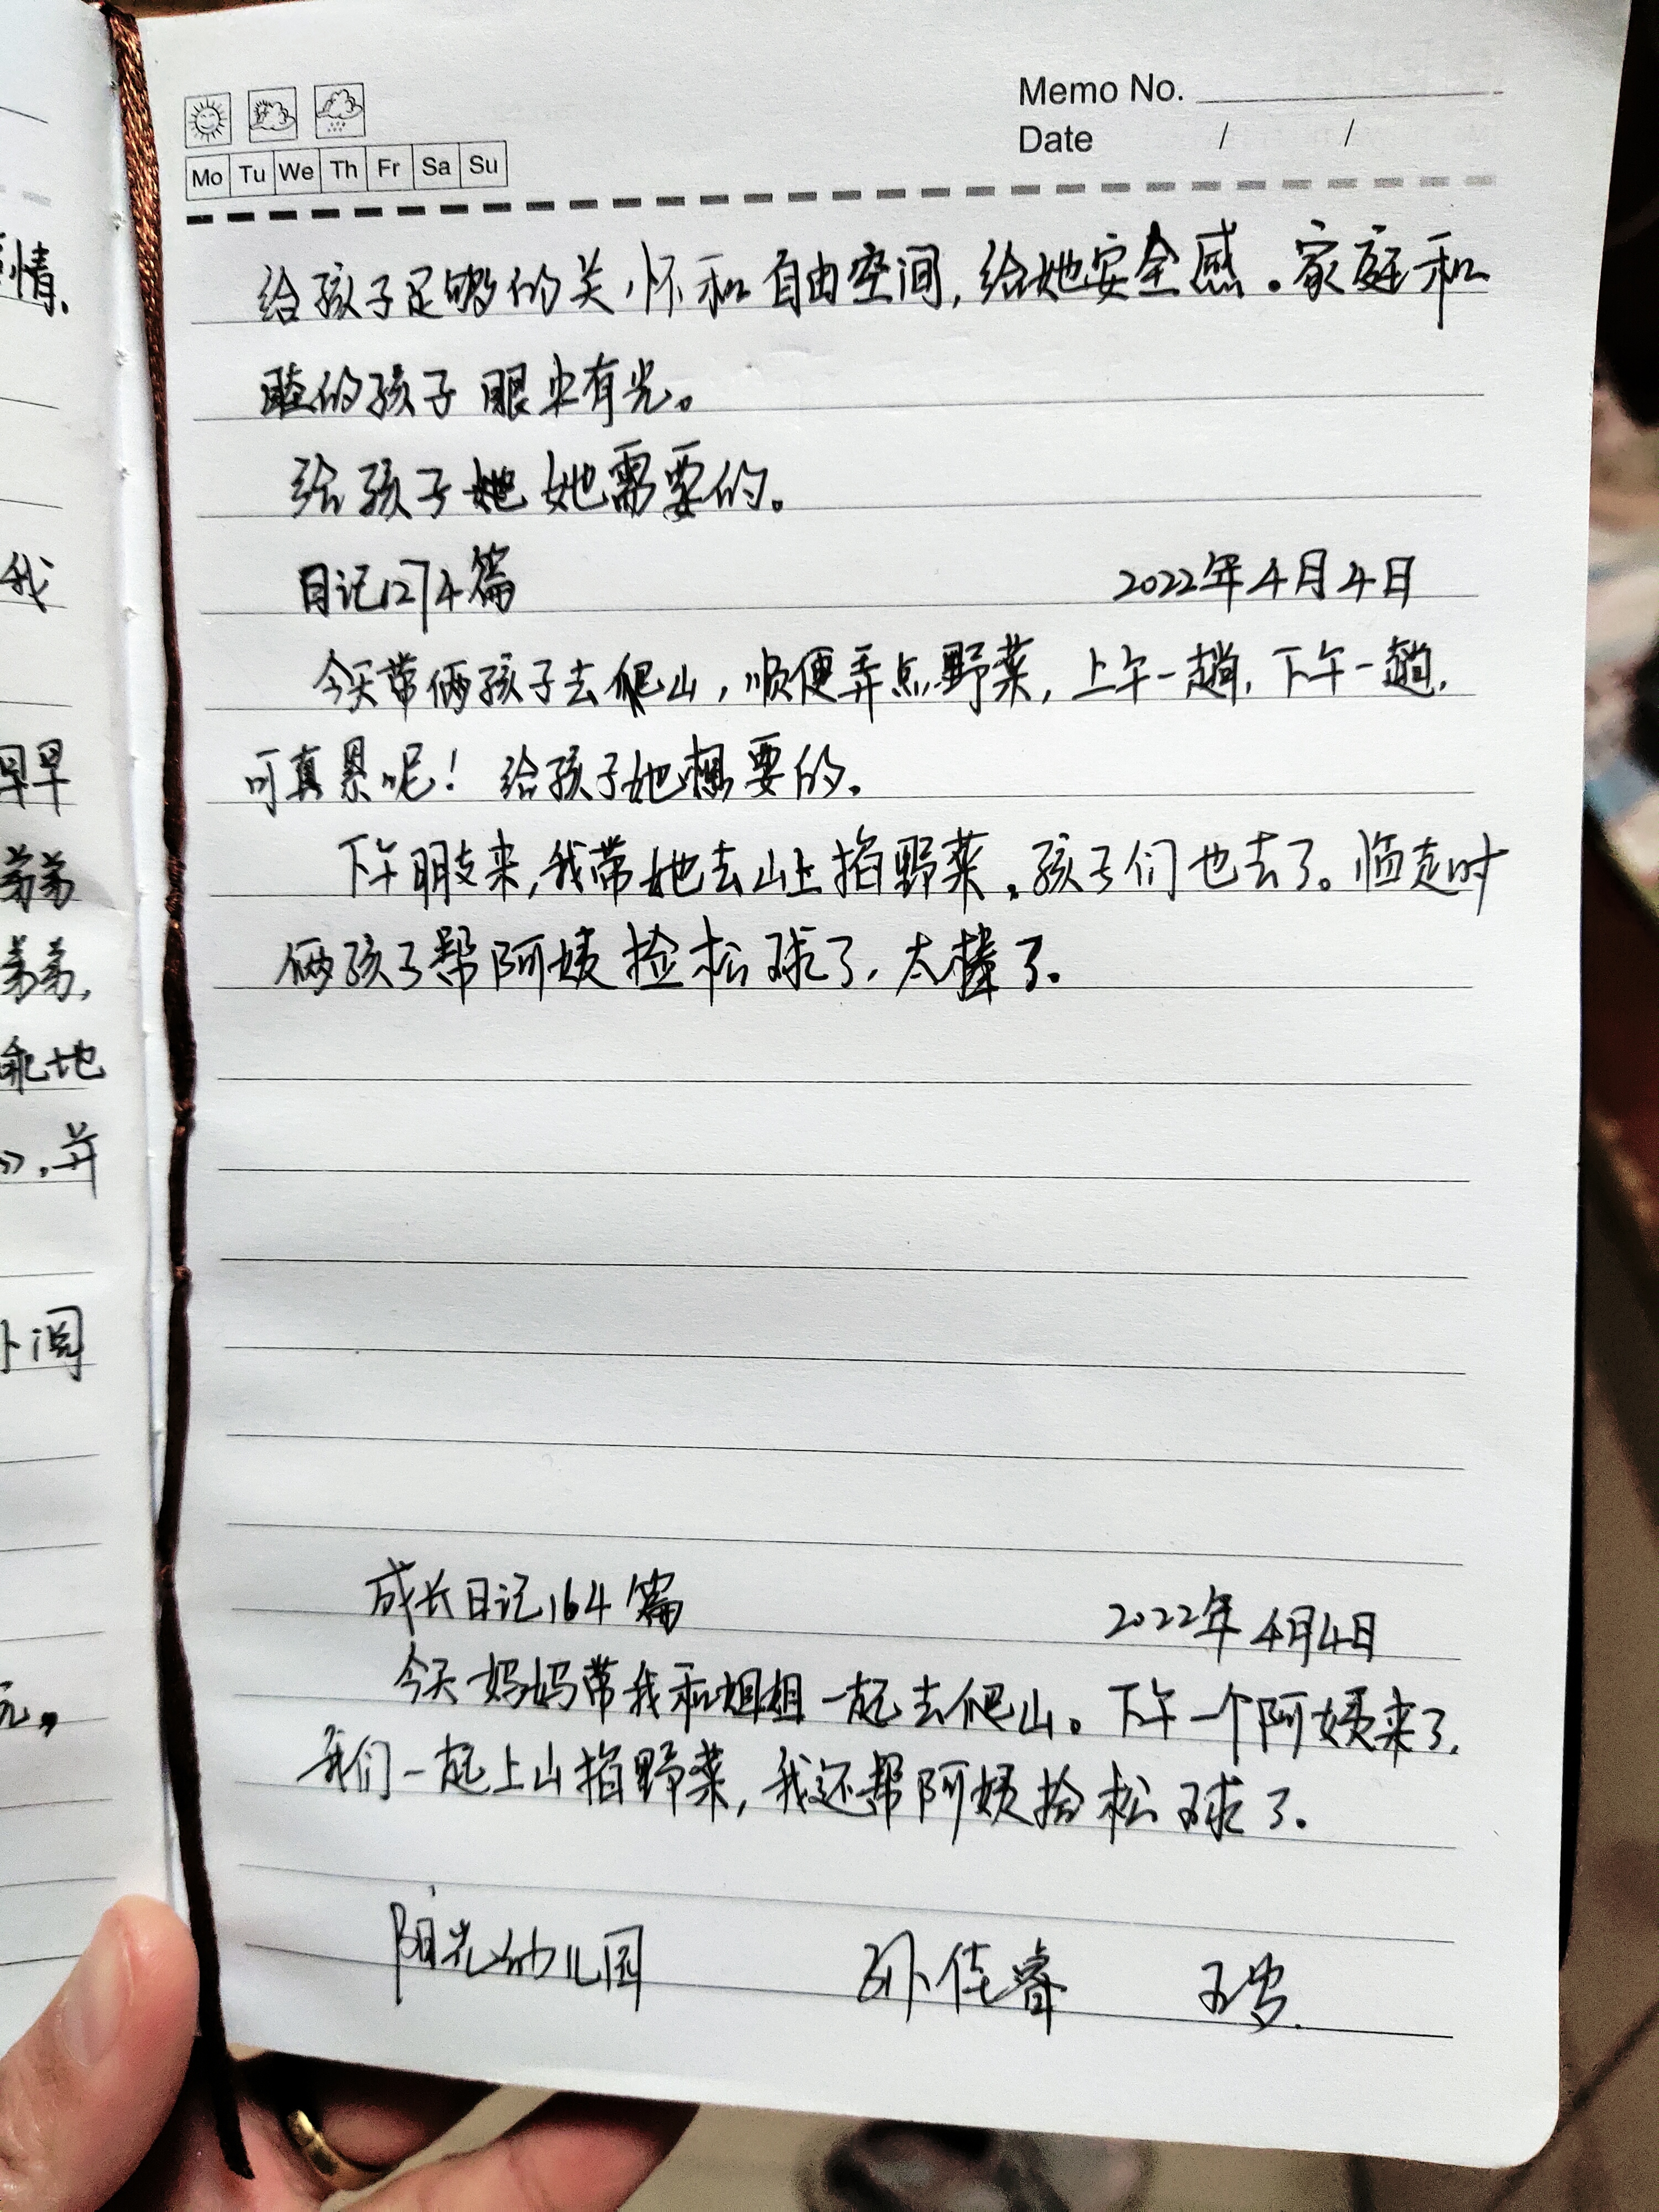 情.
我
早早
弟弟
弟弟,
乖地
》.并
卜阅
Memo No.
Date / /
Mo Tu We Th Fr Sa Su
给孩子足够的关怀和自由空间,给她安全感。家庭和
睦的孩子眼里有光。
给孩子她她需要的。
日记1274篇 2022年4月4日
今天带俩孩子去爬山,顺便弄点野菜,上午一趟,下午一趟,
可真累呢!给孩子她想要的。
下午朋友来,我带她去山上掐野菜。孩子们也去了。临走时
俩孩子帮阿姨捡松球了,太棒了。
成长日记164篇 2022年4月4日
今天妈妈带我和姐姐一起去爬山。下午一个阿姨来了,
我们一起上山掐野菜,我还帮阿姨拾松球了。
阳光幼儿园 孙佳睿